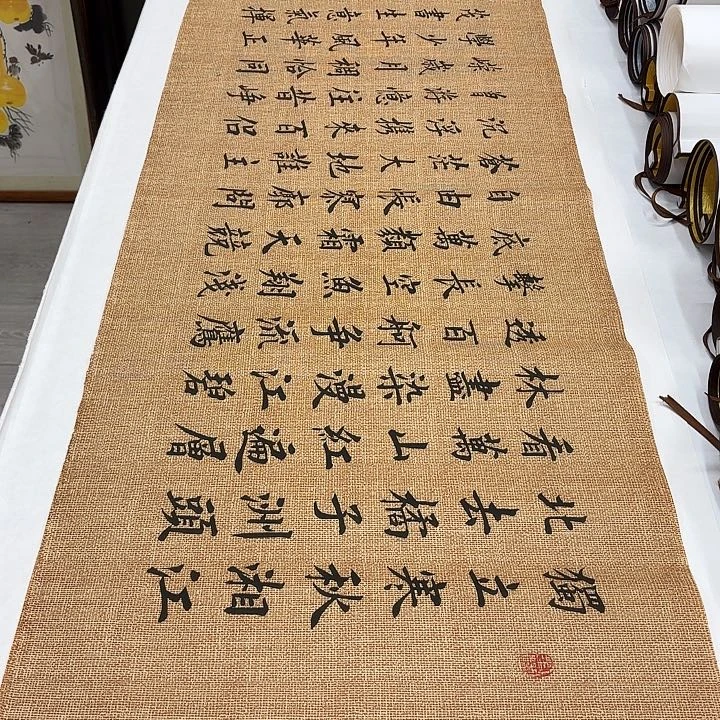 獨立寒秋湘江
北去橘子洲頭
看萬山紅遍層
林盡染漫江碧
透百舸争流鷹
擊長空魚翔淺
底萬類霜天競
自由悵寥廓問
蒼茫大地誰主
沉浮携來百侣
曾游憶往昔崢
嶸歲月稠恰同
學少年風華正
茂書生意氣揮